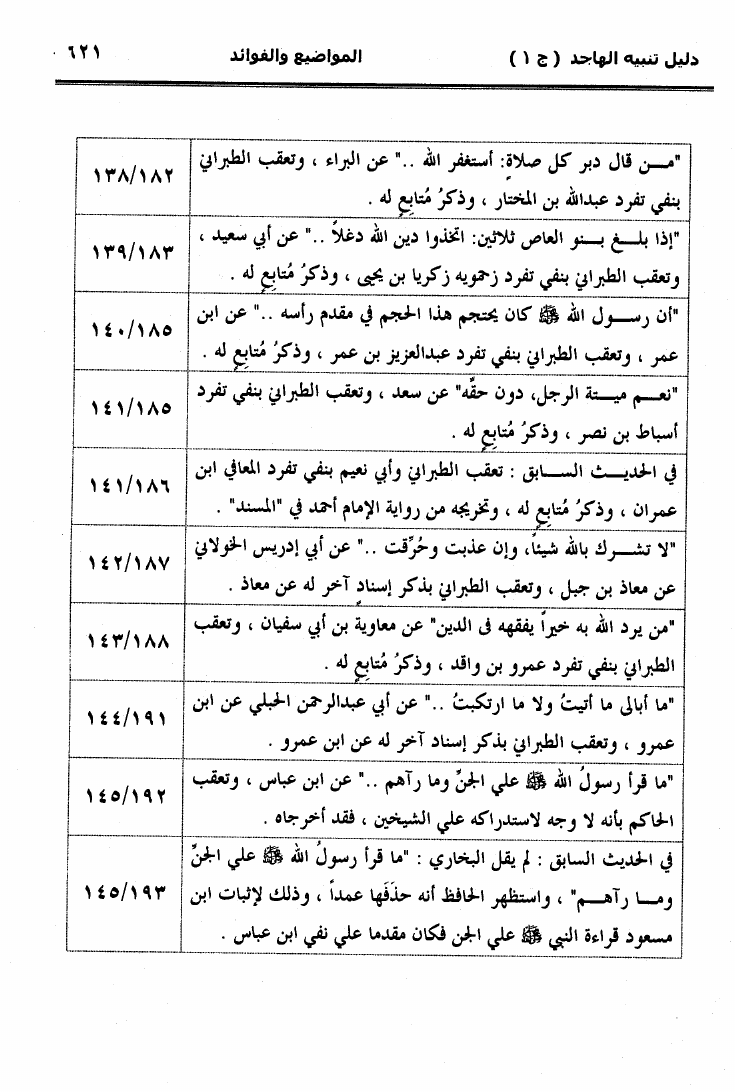 دليل تنبيه الهاجد ( ج ١ ) المواضيع والفوائد ٦٢١
"مـــن قال دبر كل صلاةٍ: أستغفر الله .." عن البراء ، وتعقب الطبراني
بنفي تفرد عبدالله بن المختار ، وذكرُ مُتابِعٍ له .
١٣٨/١٨٢
"إذا بلـــغ بـــنو العاص ثلاثين: اتخذوا دين الله دغلاً .." عن أبي سعيد ،
وتعقب الطبراني بنفي تفرد زحمويه زكريا بن يحيى ، وذكرُ مُتابِعٍ له .
١٣٩/١٨٣
"أن رســـول الله ﷺ كان يحتجم هذا الحجم في مقدم رأسه .." عن ابن
عمر ، وتعقب الطبراني بنفي تفرد عبدالعزيز بن عمر ، وذكرُ مُتابِعٍ له .
١٤٠/١٨٥
"نعـــم ميـــتة الرجل، دون حقّه" عن سعد ، وتعقب الطبراني بنفي تفرد
أسباط بن نصر ، وذكرُ مُتابِعٍ له .
١٤١/١٨٥
في الحديـــث الســـابق : تعقب الطبراني وأبي نعيم بنفي تفرد المعافي ابن
عمران ، وذكرُ مُتابِعٍ له ، وتخريجه من رواية الإمام أحمد في "المسند" .
١٤١/١٨٦
"لا تشـــرك بالله شيئاً، وإن عذبت وحُرِّقت .." عن أبي إدريس الخولاني
عن معاذ بن جبل ، وتعقب الطبراني بذكر إسنادٍ آخر له عن معاذ .
١٤٢/١٨٧
"من يرد الله به خيراً يفقهه فى الدين" عن معاوية بن أبي سفيان ، وتعقب
الطبراني بنفي تفرد عمرو بن واقد ، وذكرُ مُتابِعٍ له .
١٤٣/١٨٨
"ما أبالى ما أتيتُ ولا ما ارتكبتُ .." عن أبي عبدالرحمن الحبلي عن ابن
عمرو ، وتعقب الطبراني بذكر إسناد آخر له عن ابن عمرو .
١٤٤/١٩١
"ما قرأ رسولُ الله ﷺ علي الجنِّ وما رآهم .." عن ابن عباس ، وتعقب
الحاكم بأنه لا وجه لاستدراكه علي الشيخين ، فقد أخرجاه .
١٤٥/١٩٢
في الحديث السابق : لم يقل البخاري : "ما قرأ رسولُ الله ﷺ علي الجنِّ
ومـــا رآهـــم" ، واستظهر الحافظ أنه حذَفَها عمداً ، وذلك لإثبات ابن
مسعود قراءة النبي ﷺ علي الجن فكان مقدما علي نفي ابن عباس .
١٤٥/١٩٣